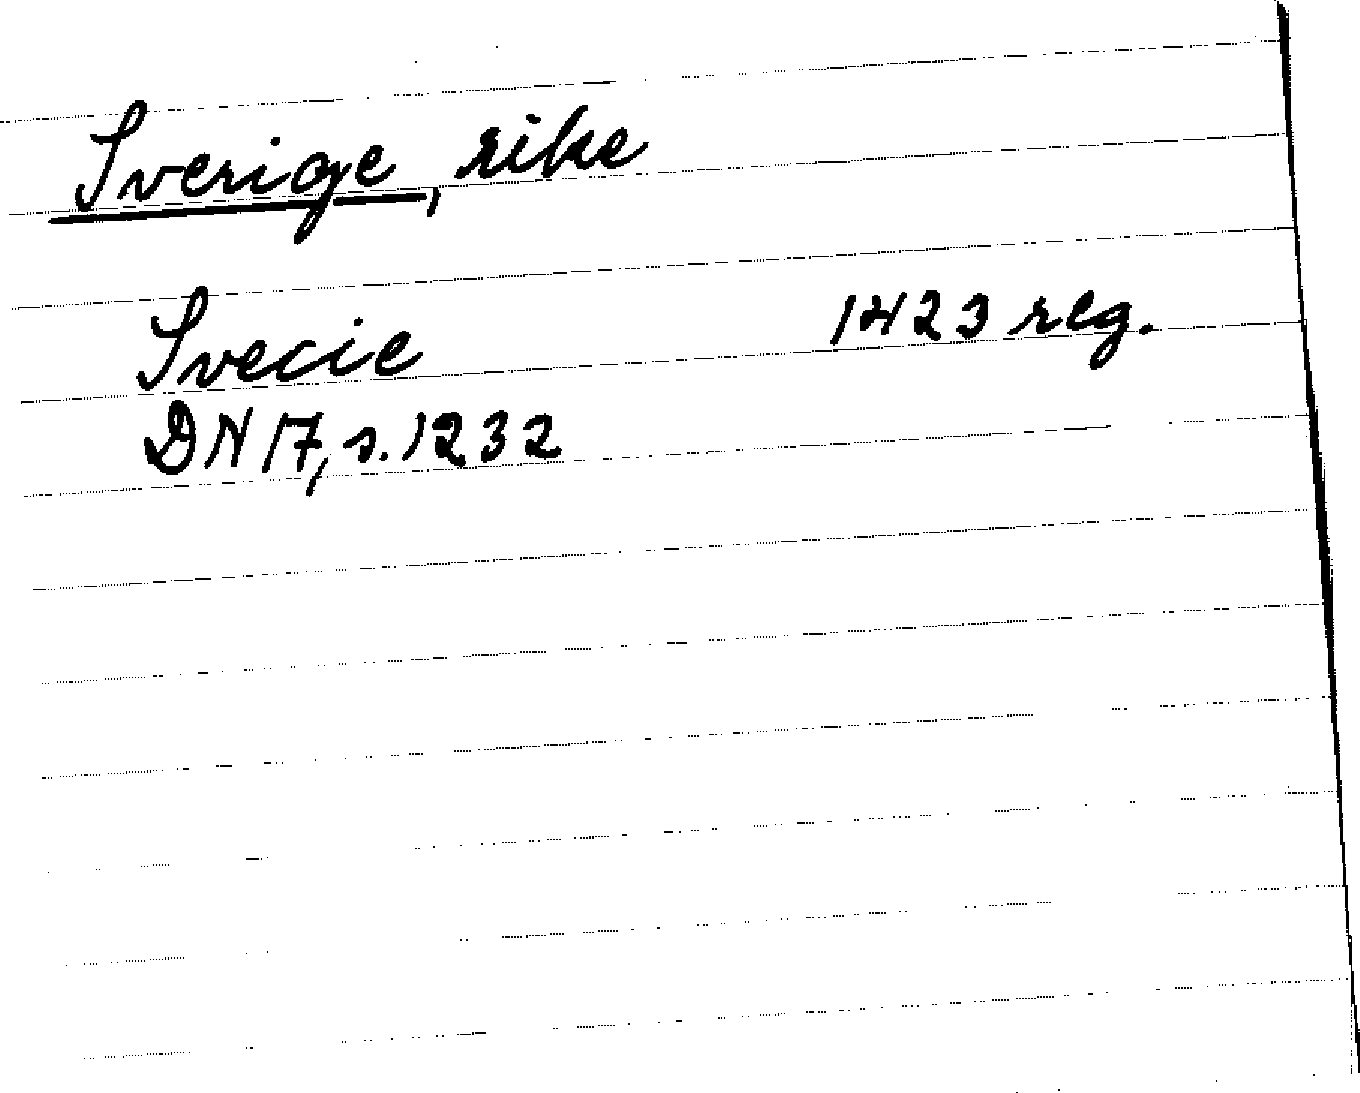 Sverige, rike
Svecie 1423 reg.
DN 17, s. 1232